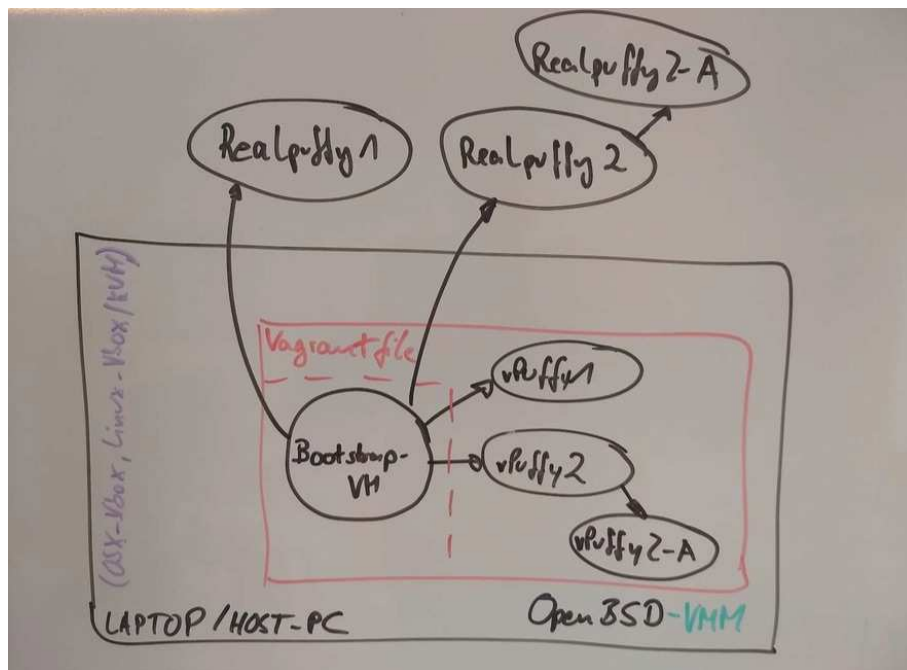 Realpuffy 2-A
Realpuffy 1
Realpuffy 2
(OSX-Vbox, Linux-Vbox/KVM)
Vagrantfile
vPuffy1
Bootstrap-
VM
vPuffy2
vPuffy2-A
LAPTOP/HOST-PC
OpenBSD-VMM